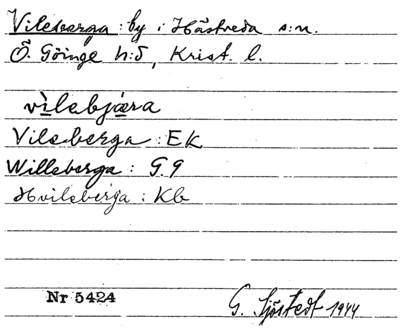 Vilseberga: by i Hästveda s:n.
Ö. Göinge h:d, Krist. l.
vilsebjæra
Vilseberga: EK
Willeberga: G.9
Hvilseberga: Kb
Nr 5424
G. Sjöstedt 1944